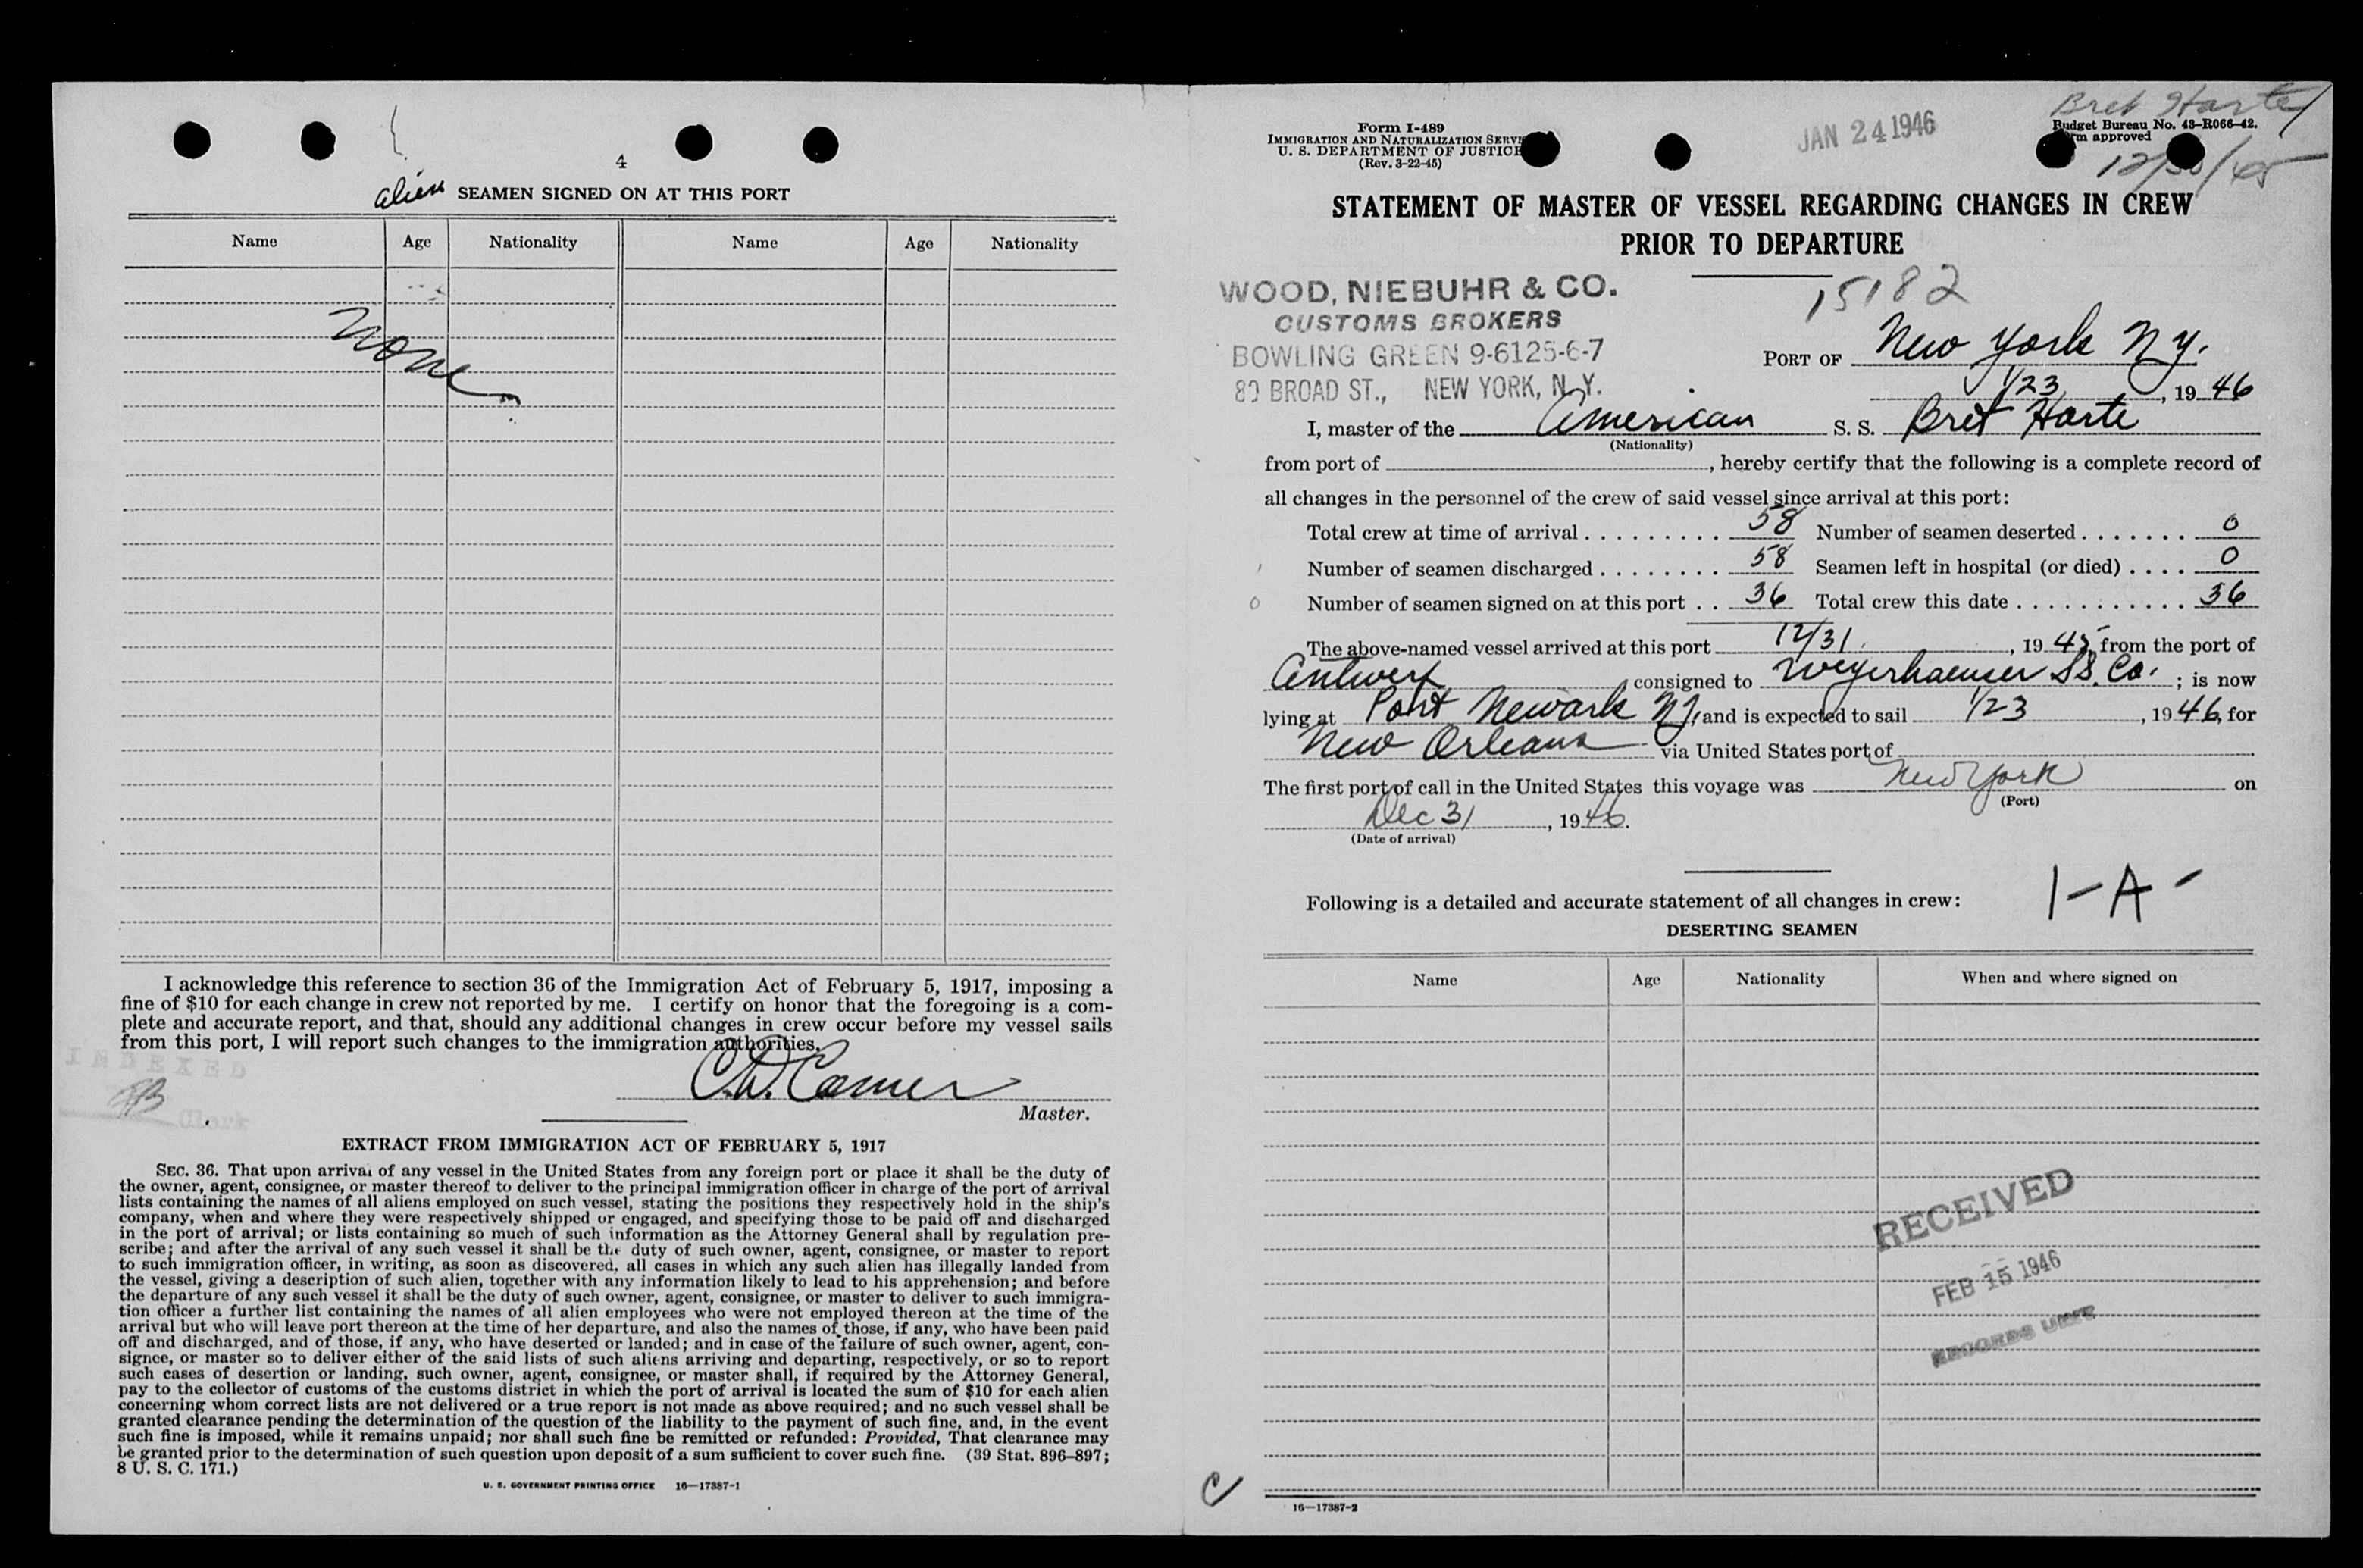 4
alien SEAMEN SIGNED ON AT THIS PORT
Name Age Nationality Name Age Nationality
None
I acknowledge this reference to section 36 of the Immigration Act of February 5, 1917, imposing a
fine of $10 for each change in crew not reported by me. I certify on honor that the foregoing is a com-
plete and accurate report, and that, should any additional changes in crew occur before my vessel sails
from this port, I will report such changes to the immigration authorities.
INDEXED
Clerk
Master.
EXTRACT FROM IMMIGRATION ACT OF FEBRUARY 5, 1917
SEC. 36. That upon arrival of any vessel in the United States from any foreign port or place it shall be the duty of
the owner, agent, consignee, or master thereof to deliver to the principal immigration officer in charge of the port of arrival
lists containing the names of all aliens employed on such vessel, stating the positions they respectively hold in the ship's
company, when and where they were respectively shipped or engaged, and specifying those to be paid off and discharged
in the port of arrival; or lists containing so much of such information as the Attorney General shall by regulation pre-
scribe; and after the arrival of any such vessel it shall be the duty of such owner, agent, consignee, or master to report
to such immigration officer, in writing, as soon as discovered, all cases in which any such alien has illegally landed from
the vessel, giving a description of such alien, together with any information likely to lead to his apprehension; and before
the departure of any such vessel it shall be the duty of such owner, agent, consignee, or master to deliver to such immigra-
tion officer a further list containing the names of all alien employees who were not employed thereon at the time of the
arrival but who will leave port thereon at the time of her departure, and also the names of those, if any, who have been paid
off and discharged, and of those, if any, who have deserted or landed; and in case of the failure of such owner, agent, con-
signee, or master so to deliver either of the said lists of such aliens arriving and departing, respectively, or so to report
such cases of desertion or landing, such owner, agent, consignee, or master shall, if required by the Attorney General,
pay to the collector of customs of the customs district in which the port of arrival is located the sum of $10 for each alien
concerning whom correct lists are not delivered or a true report is not made as above required; and no such vessel shall be
granted clearance pending the determination of the question of the liability to the payment of such fine, and, in the event
such fine is imposed, while it remains unpaid; nor shall such fine be remitted or refunded: Provided, That clearance may
be granted prior to the determination of such question upon deposit of a sum sufficient to cover such fine. (39 Stat. 896–897;
8 U. S. C. 171.)
U. S. GOVERNMENT PRINTING OFFICE 16—17387-1
Bret Harte
Form I-489
IMMIGRATION AND NATURALIZATION
U. S. DEPARTMENT OF JUSTICE
(Rev. 3-22-45)
JAN 24 1946
Budget Bureau No. 43-R066-42.
approved
STATEMENT OF MASTER OF VESSEL REGARDING CHANGES IN CREW
PRIOR TO DEPARTURE
WOOD, NIEBUHR & CO.
CUSTOMS BROKERS
BOWLING GREEN 9-6125-6-7
80 BROAD ST., NEW YORK, N.Y.
15182
PORT OF New York N.Y.
1/23, 1946
I, master of the American S. S. Bret Harte
(Nationality)
from port of , hereby certify that the following is a complete record of
all changes in the personnel of the crew of said vessel since arrival at this port:
Total crew at time of arrival 58 Number of seamen deserted 0
Number of seamen discharged 58 Seamen left in hospital (or died) 0
Number of seamen signed on at this port 36 Total crew this date 36
The above-named vessel arrived at this port 12/31, 1945, from the port of
Antwerp consigned to Weyerhaeuser SS. Co. ; is now
lying at Port Newark NJ, and is expected to sail 1/23, 1946, for
New Orleans via United States port of
The first port of call in the United States this voyage was New York on
(Port)
Dec 31, 1946.
(Date of arrival)
1-A-
Following is a detailed and accurate statement of all changes in crew:
DESERTING SEAMEN
Name Age Nationality When and where signed on
RECEIVED
FEB 15 1946
RECORDS UNIT
C
16—17387-2